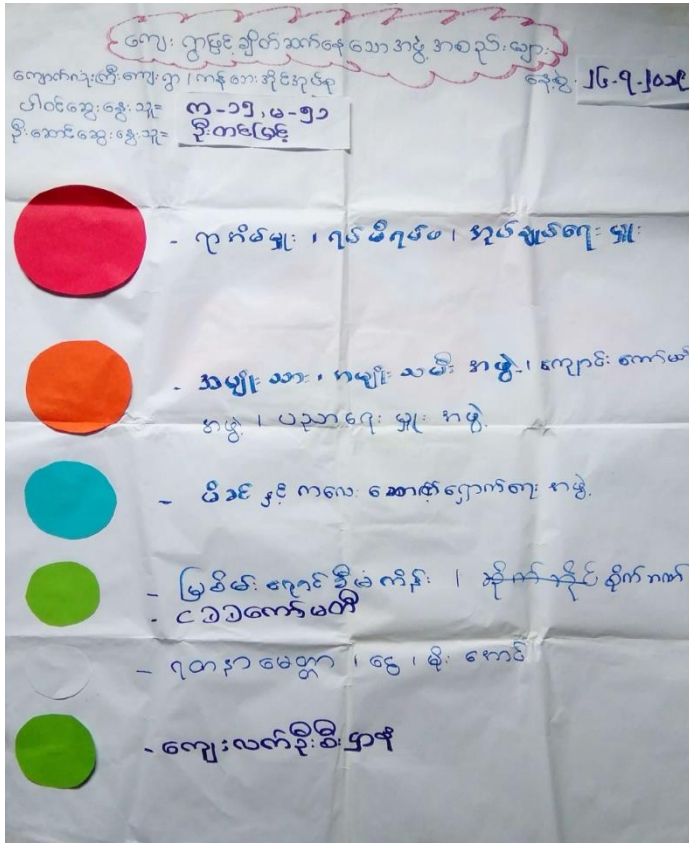 ကျေးရွာဖြင့်ချိတ်ဆက်နေသောအဖွဲ့အစည်းများ
ကျောက်လုံးကြီးကျေးရွာ၊ ကန်ဘေးအိုင်အုပ်စု
နေ့စွဲ ၂၆-၇-၂၀၁၉
ပါဝင်ဆွေးနွေးသူ= က-၁၅, မ-၅၁
ဦးဆောင်ဆွေးနွေးသူ= ဦးတင်မြင့်
- ရာအိမ်မှူး ၊ ရပ်မိရပ်ဖ ၊ အုပ်ချုပ်ရေးမှူး
- အမျိုးသား ၊ အမျိုးသမီး အဖွဲ့ ၊ ကျောင်းကော်မတီ
အဖွဲ့ ၊ ပညာရေးမှူး အဖွဲ့
- မိခင် နှင့် ကလေး စောင့်ရှောက်ရေး အဖွဲ့
- မြစိမ်းရောင်စီမံကိန်း ၊ စိုက်ဘဏ်
- ငါါကော်မတီ
- ရတနာမေတ္တာ ၊ ငွေ ၊ မိုးကောင်
- ကျေးလက်ဦးစီးဌာန